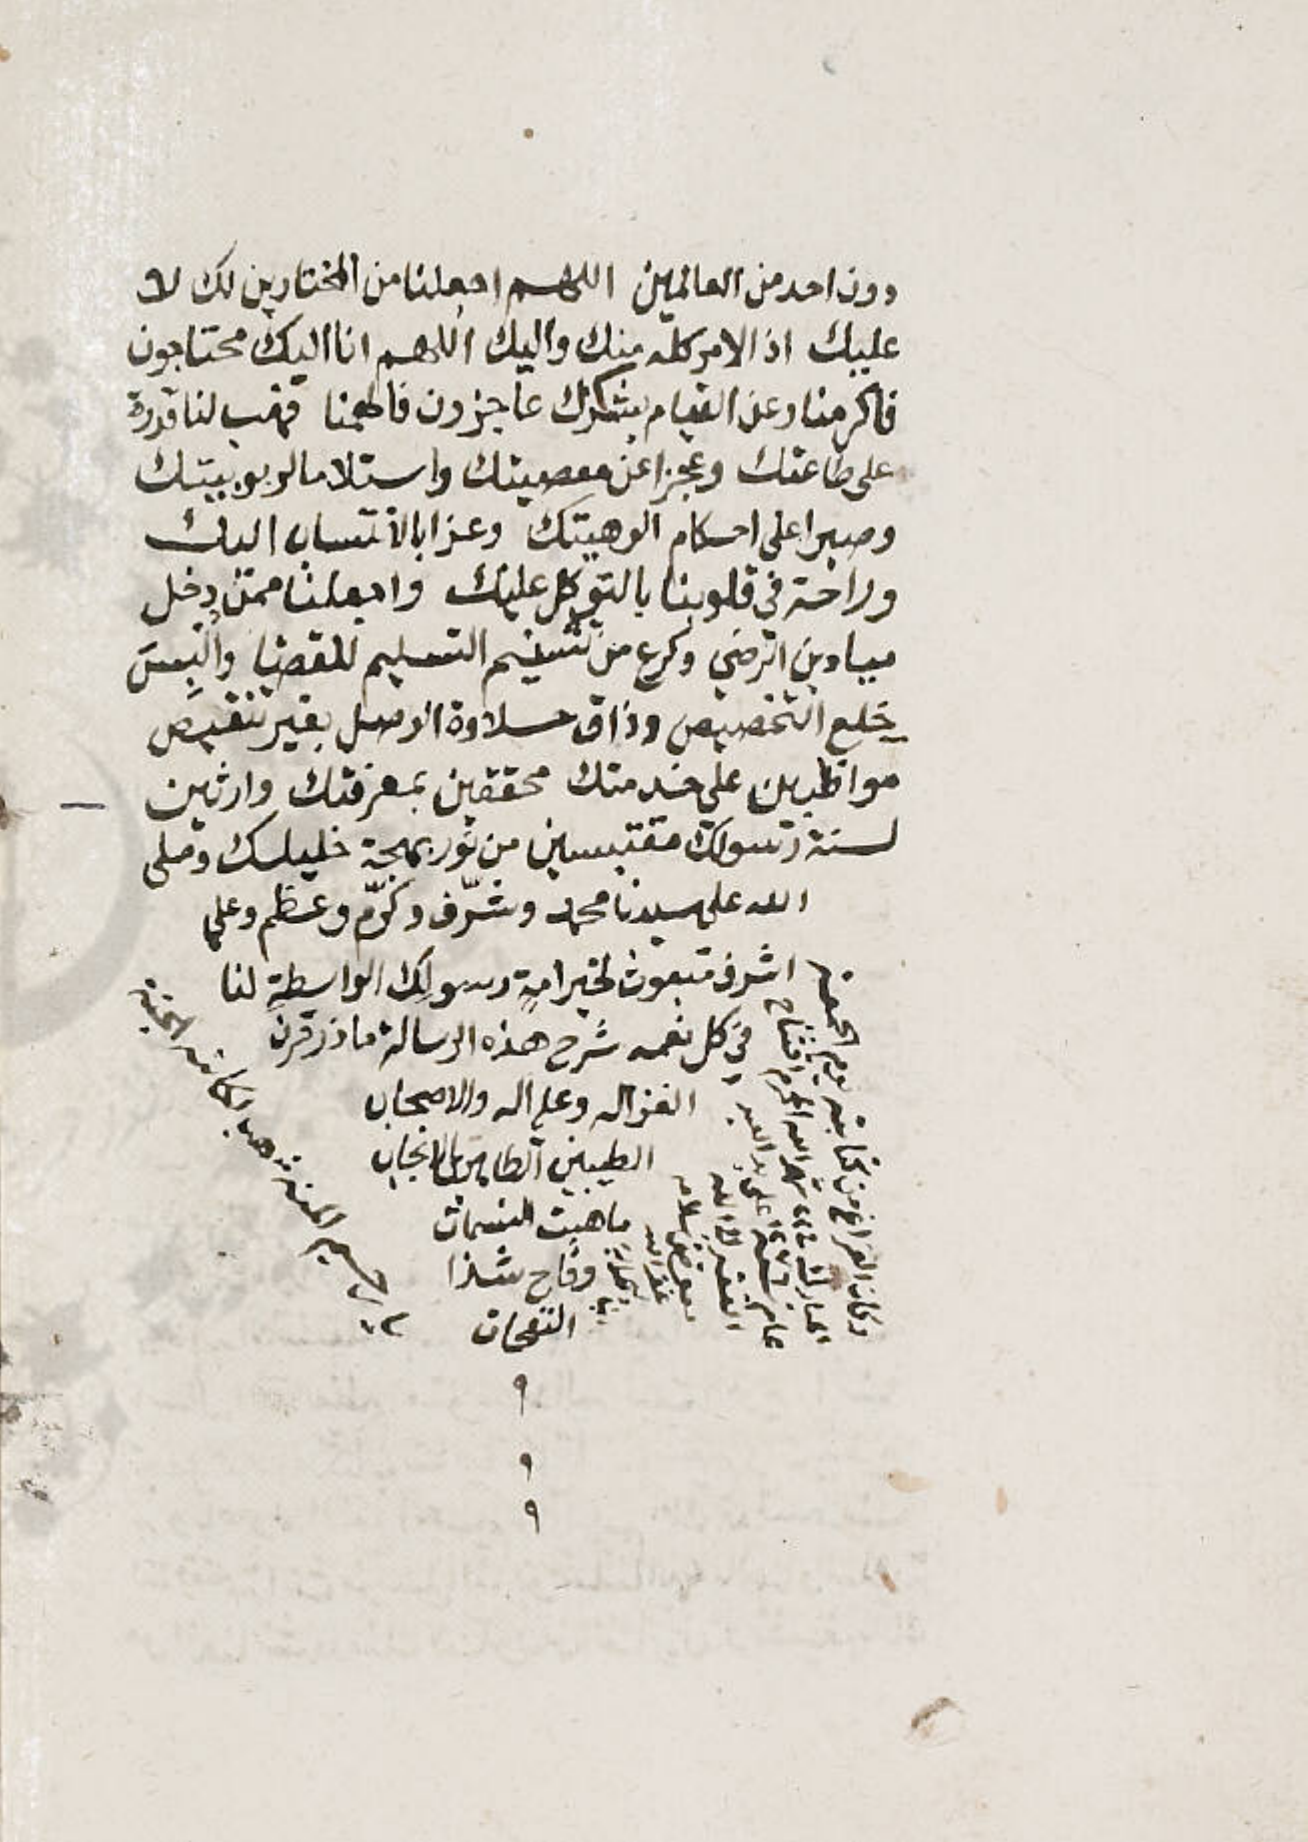 دون احد من العالمين اللهم اجعلنا من المختارين لك لا
عليك اذ الامر كله منك واليك اللهم انا اليك محتاجون
فاكرمنا وعن القيام بشكرك عاجزون فالهمنا فهب لنا قدرة
على طاعتك وعجزا عن معصيتك واستلاما لربوبيتك
وصبرا على احكام الوهيتك وعزا بالانتساب اليك
وراحة في قلوبنا بالتوكل عليك واجعلنا ممن دخل
ميادين الرضي وكرع من تسنيم التسليم للقضا والبس
خلع التخصيص وذاق حلاوة الوصل بغير تنقيص
مواظبين على خدمتك محققين بمعرفتك وارثين
لسنة رسولك مقتبسين من نور بهجة خليلك وصلى
الله على سيدنا محمد وشرّف وكرّم وعظم وعلى
اشرف مبعوث لخير امة رسولك الواسطة لنا
في كل نعمه شرح هذه الرسالة ما ذرقرن
الغزاله وعلى اله والاصحاب
الطيبين الطاهرين الانجاب
ماهبت النسمات
وفاح شذا
النفحات
وكان الفراغ من كتابته يوم الجمعة
المباركة شهر الله المحرم افتتاح
عام سنة على يد العبد
الفقير الى الله